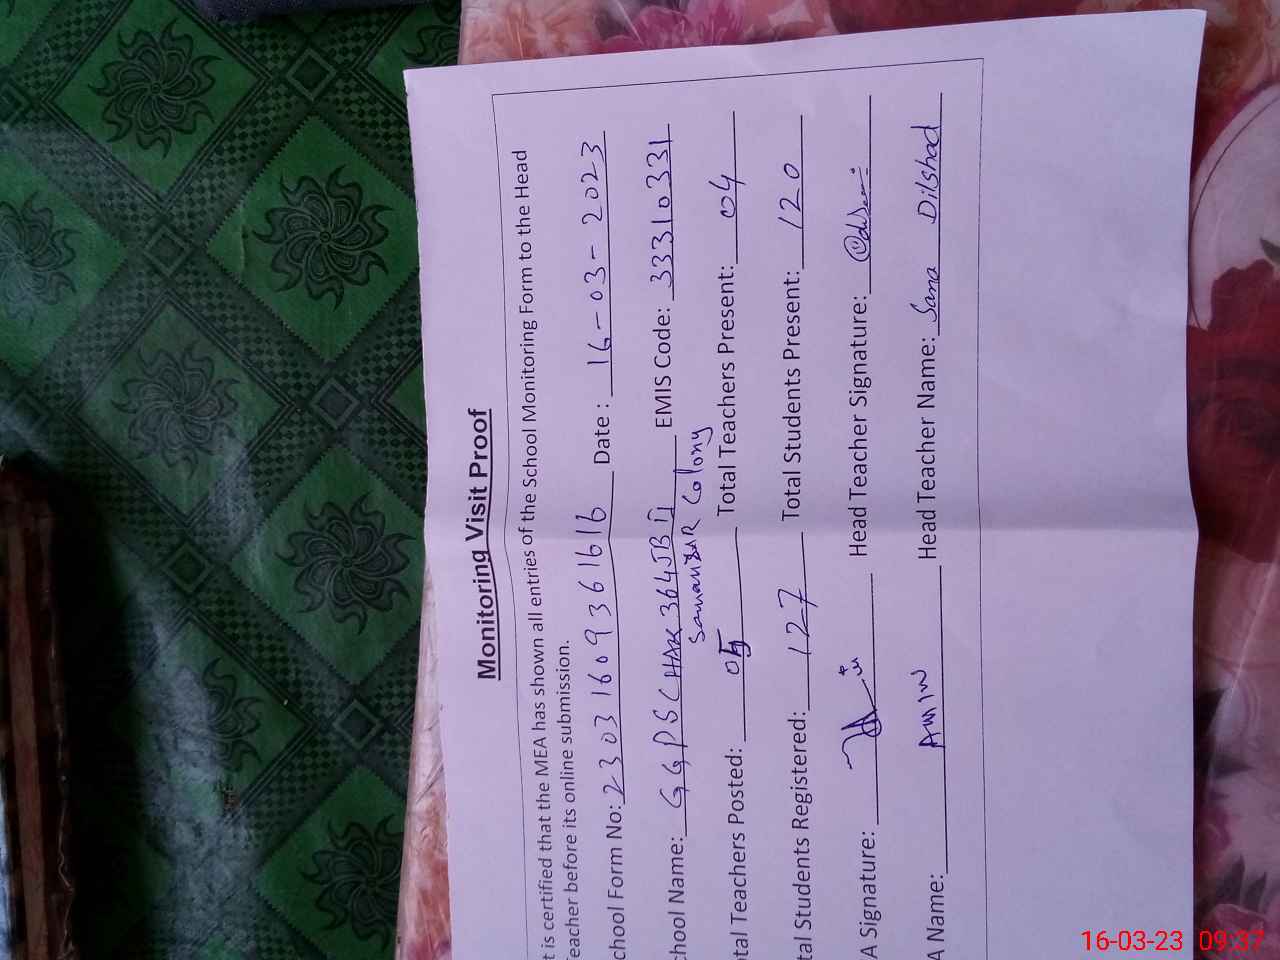 Monitoring Visit Proof
t is certified that the MEA has shown all entries of the School Monitoring Form to the Head
eacher before its online submission.
chool Form No: 23031609361616 Date : 16-03-2023
chool Name: GGPS CHAK 364JB II EMIS Code: 33310331
Samanzar Colony
otal Teachers Posted: 05 Total Teachers Present: 04
tal Students Registered: 127 Total Students Present: 120
A Signature: Head Teacher Signature:
A Name: AMIN Head Teacher Name: Sana Dilshad
16-03-23 09:37